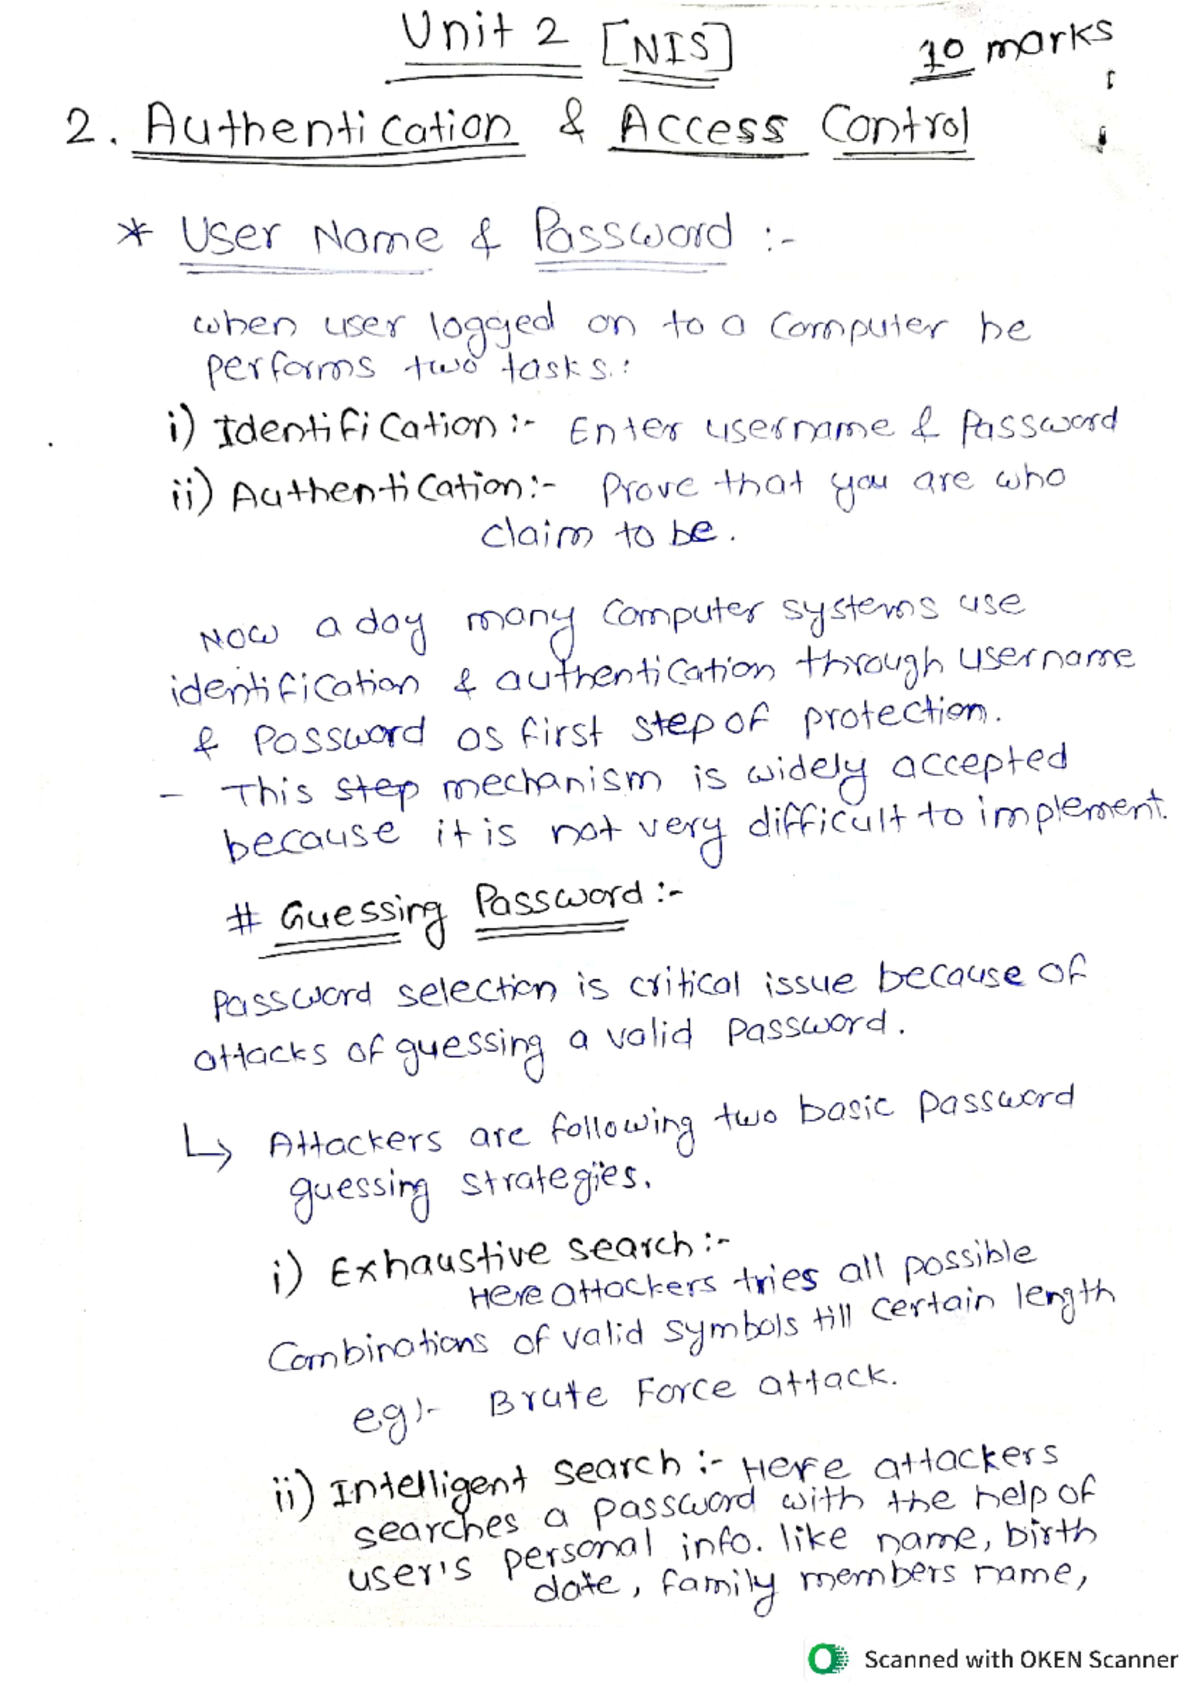 Unit 2 [NIS]
10 marks
2. Authentication & Access Control
* User Name & Password :-
when user logged on to a computer he
performs two tasks.:
i) Identification :- Enter username & Password
ii) Authentication:- Prove that you are who
claim to be.
Now a day many Computer systems use
identification & authentication through username
& Password as first step of protection.
- This step mechanism is widely accepted
because it is not very difficult to implement.
# Guessing Password :-
Password selection is critical issue because of
attacks of guessing a valid Password.
↳ Attackers are following two basic password
guessing strategies.
i) Exhaustive search :-
Here attackers tries all possible
Combinations of valid symbols till certain length
eg:- Brute Force attack.
ii) Intelligent search :- Here attackers
searches a password with the help of
user's personal info. like name, birth
date, family members name,
Scanned with OKEN Scanner